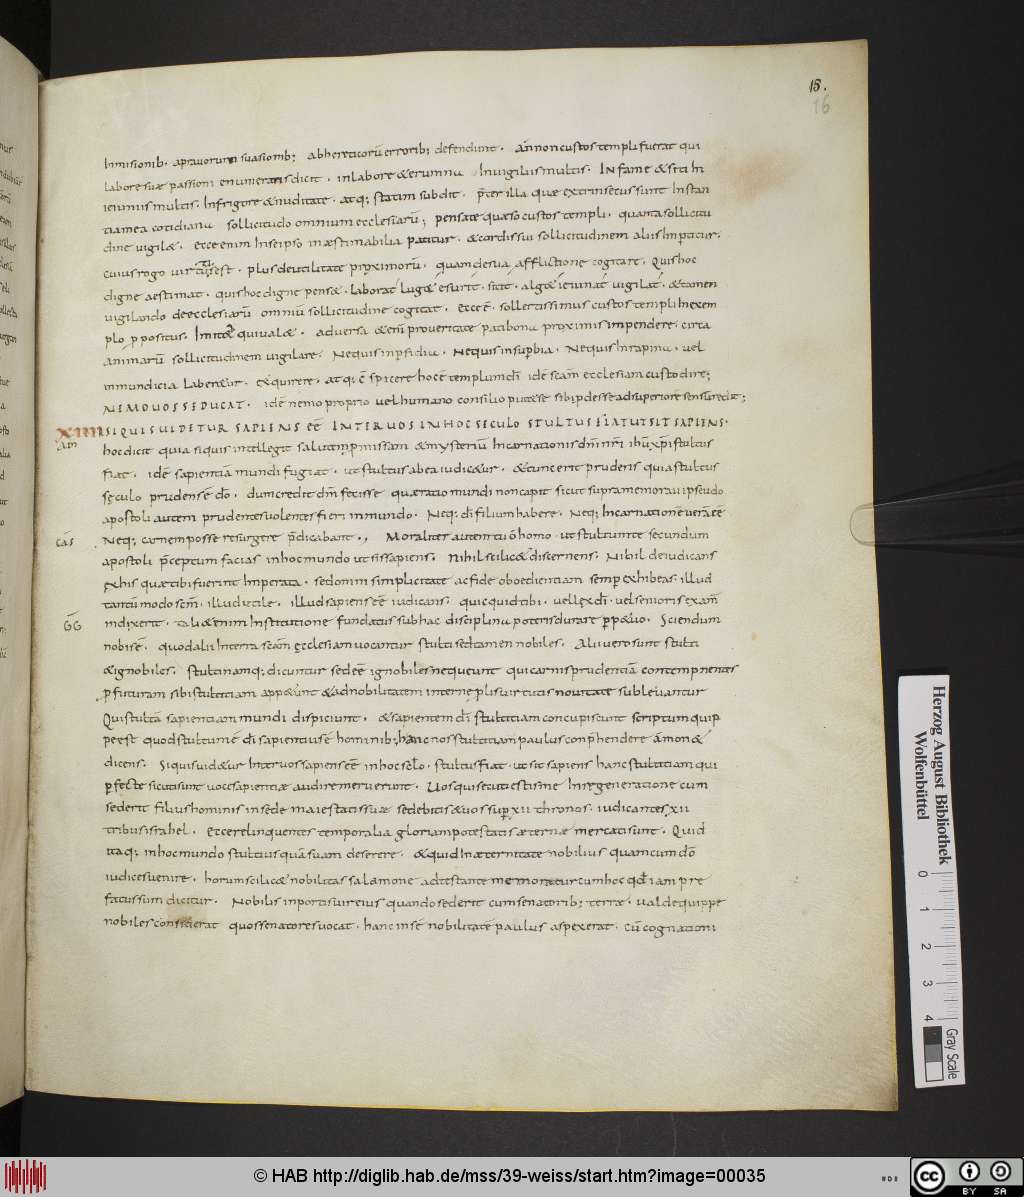 15.
16
Inmisionib. apravorum suasionib; abhereticorū errorib; defendunt. annoncustos templi fuerat qui
labore suæ passioni enumerans dicit. inlabore & erumna Invigiliis multis. In fame & siti In
ieiuniis multis. Infrigore & nuditate. atq; statim subdit. p̄ter illa quæ extrinsecus sunt Instan
tia mea cotidiana sollicitudo omnium ecclesiarū; pensate quæso custos templi. quanta sollicitu
dine vigil&. ecce enim Inseipso inæstimabilia patitur. & cordis sui sollicitudinem aliis Impertitur.
cuius rogo virtutis est. plus de utilitate proximorū. quam de sua afflictione cogitare. Quis hoc
digne aestimat. quis hoc digne pens&. laborat lug& esurit. sitit. alg& ieiunat vigilat. & tamen
vigilando de ecclesiarū omniū sollicitudine cogitat. ecce ē. sollertissimus custos templi In exem
plo p positus. Imit&ur qui val&. adversa & enī pro veritate patibona proximis impendere. circa
animarū sollicitudinem vigilare. Nequis in pfidia. Nequis insupbia. Nequis Inrapina. vel
inmundicia Labentur. exquirere. atq; c̄spicere hoc ē templum dī idē scam ecclesiam custodire;
NEMO VOS SEDUCAT. idē nemo proprio vel humano consilio putet se sibi pdesse ad superiorē sensū redit;
XIIII SI QUIS VIDETUR SAPIENS EE INTER VOS IN HOC SECULO STULTUS FIAT UT SIT SAPIENS.
AM
hoc dicit quia siquis intellegit salutem pmissam & mysteriū Incarnationis dm̄i nr̄i ihu xpi stultus
fiat. idē sapientiā mundi fugiat. ut stultus ab ea iudic&ur. & tunc erit prudens quia stultus
sęculo prudens ē dō. dum credit dm̄ fecisse quæ ratio mundi non capit sicut supra memoravi pseudo
apostoli autem prudentes volentes fieri in mundo. Neq; dī filium habere. Neq; Incarnationē veram eē
CAS
Neq; carnem posse resurgere p̄dicabant., Moraliter autem tu ō homo. ut stultum te secundum
apostoli p̄ceptum facias in hoc mundo ut sis sapiens. Nihil scilic& discernens. Nihil deiudicans
ex his quæ tibi fuerint Imperata. sed omni simplicitate ac fide oboedientiam semp exhibeas. illud
tantū modo scm. illud utile. illud sapiens eē iudicans. quicquid tibi. vel lex dī. vel senioris examē
GG
indixerit. tali & enim Institutione fundatus sub hac disciplina poteris durare p p&uo. Sciendum
nobis ē. quod alii Interra scam ęcclesiam vocantur stulti sed tamen nobiles. Alii vero sunt stulti
& ignobiles. stulti namq; dicuntur sed eē ignobiles nequeunt qui carnis prudentiā contempnentes
p futuram sibi stultitiam app&unt & ad nobilitatem internę plis virtutis novitate sublevantur
Qui stultā sapientiam mundi dispiciunt. & sapientem dī stultitiam concupiscunt scriptum quip
pe est quod stultum ē dī sapientius ē hominib; hanc nos stultitiam paulus conp̄hendere āmon&
dicens. Siquis vid&ur Inter vos sapiens eē in hoc seclo. stultus fiat. ut sit sapiens hanc stultitiam qui
p fecte sicuti sunt voce sapientiæ audire meruerunt. Vos qui secuti estis me In regeneratione cum
sederit filius hominis in sede maiestatis suæ sedebitis & vos sup xii thronos. iudicantes xii
tribus israhel. Ecce relinquentes temporalia gloriam potestatis æternæ mercati sunt. Quid
itaq; in hoc mundo stultius quā sua deserere. & quid In æternitate nobilius quam cum dō
iudices venire. horum scilic& nobilitas salamone adtestante memoratur cum hoc qd iam pre
fatus sum dicitur. Nobilis in portis vir eius quando sederit cum senatorib; terræ. valde quippe
nobiles considerat quos senatores vocat. hanc in sē nobilitatē paulus aspexerat. cū cognationi
Herzog August Bibliothek
Wolfenbüttel
0 1 2 3 4
Gray Scale
© HAB http://diglib.hab.de/mss/39-weiss/start.htm?image=00035
cc BY SA